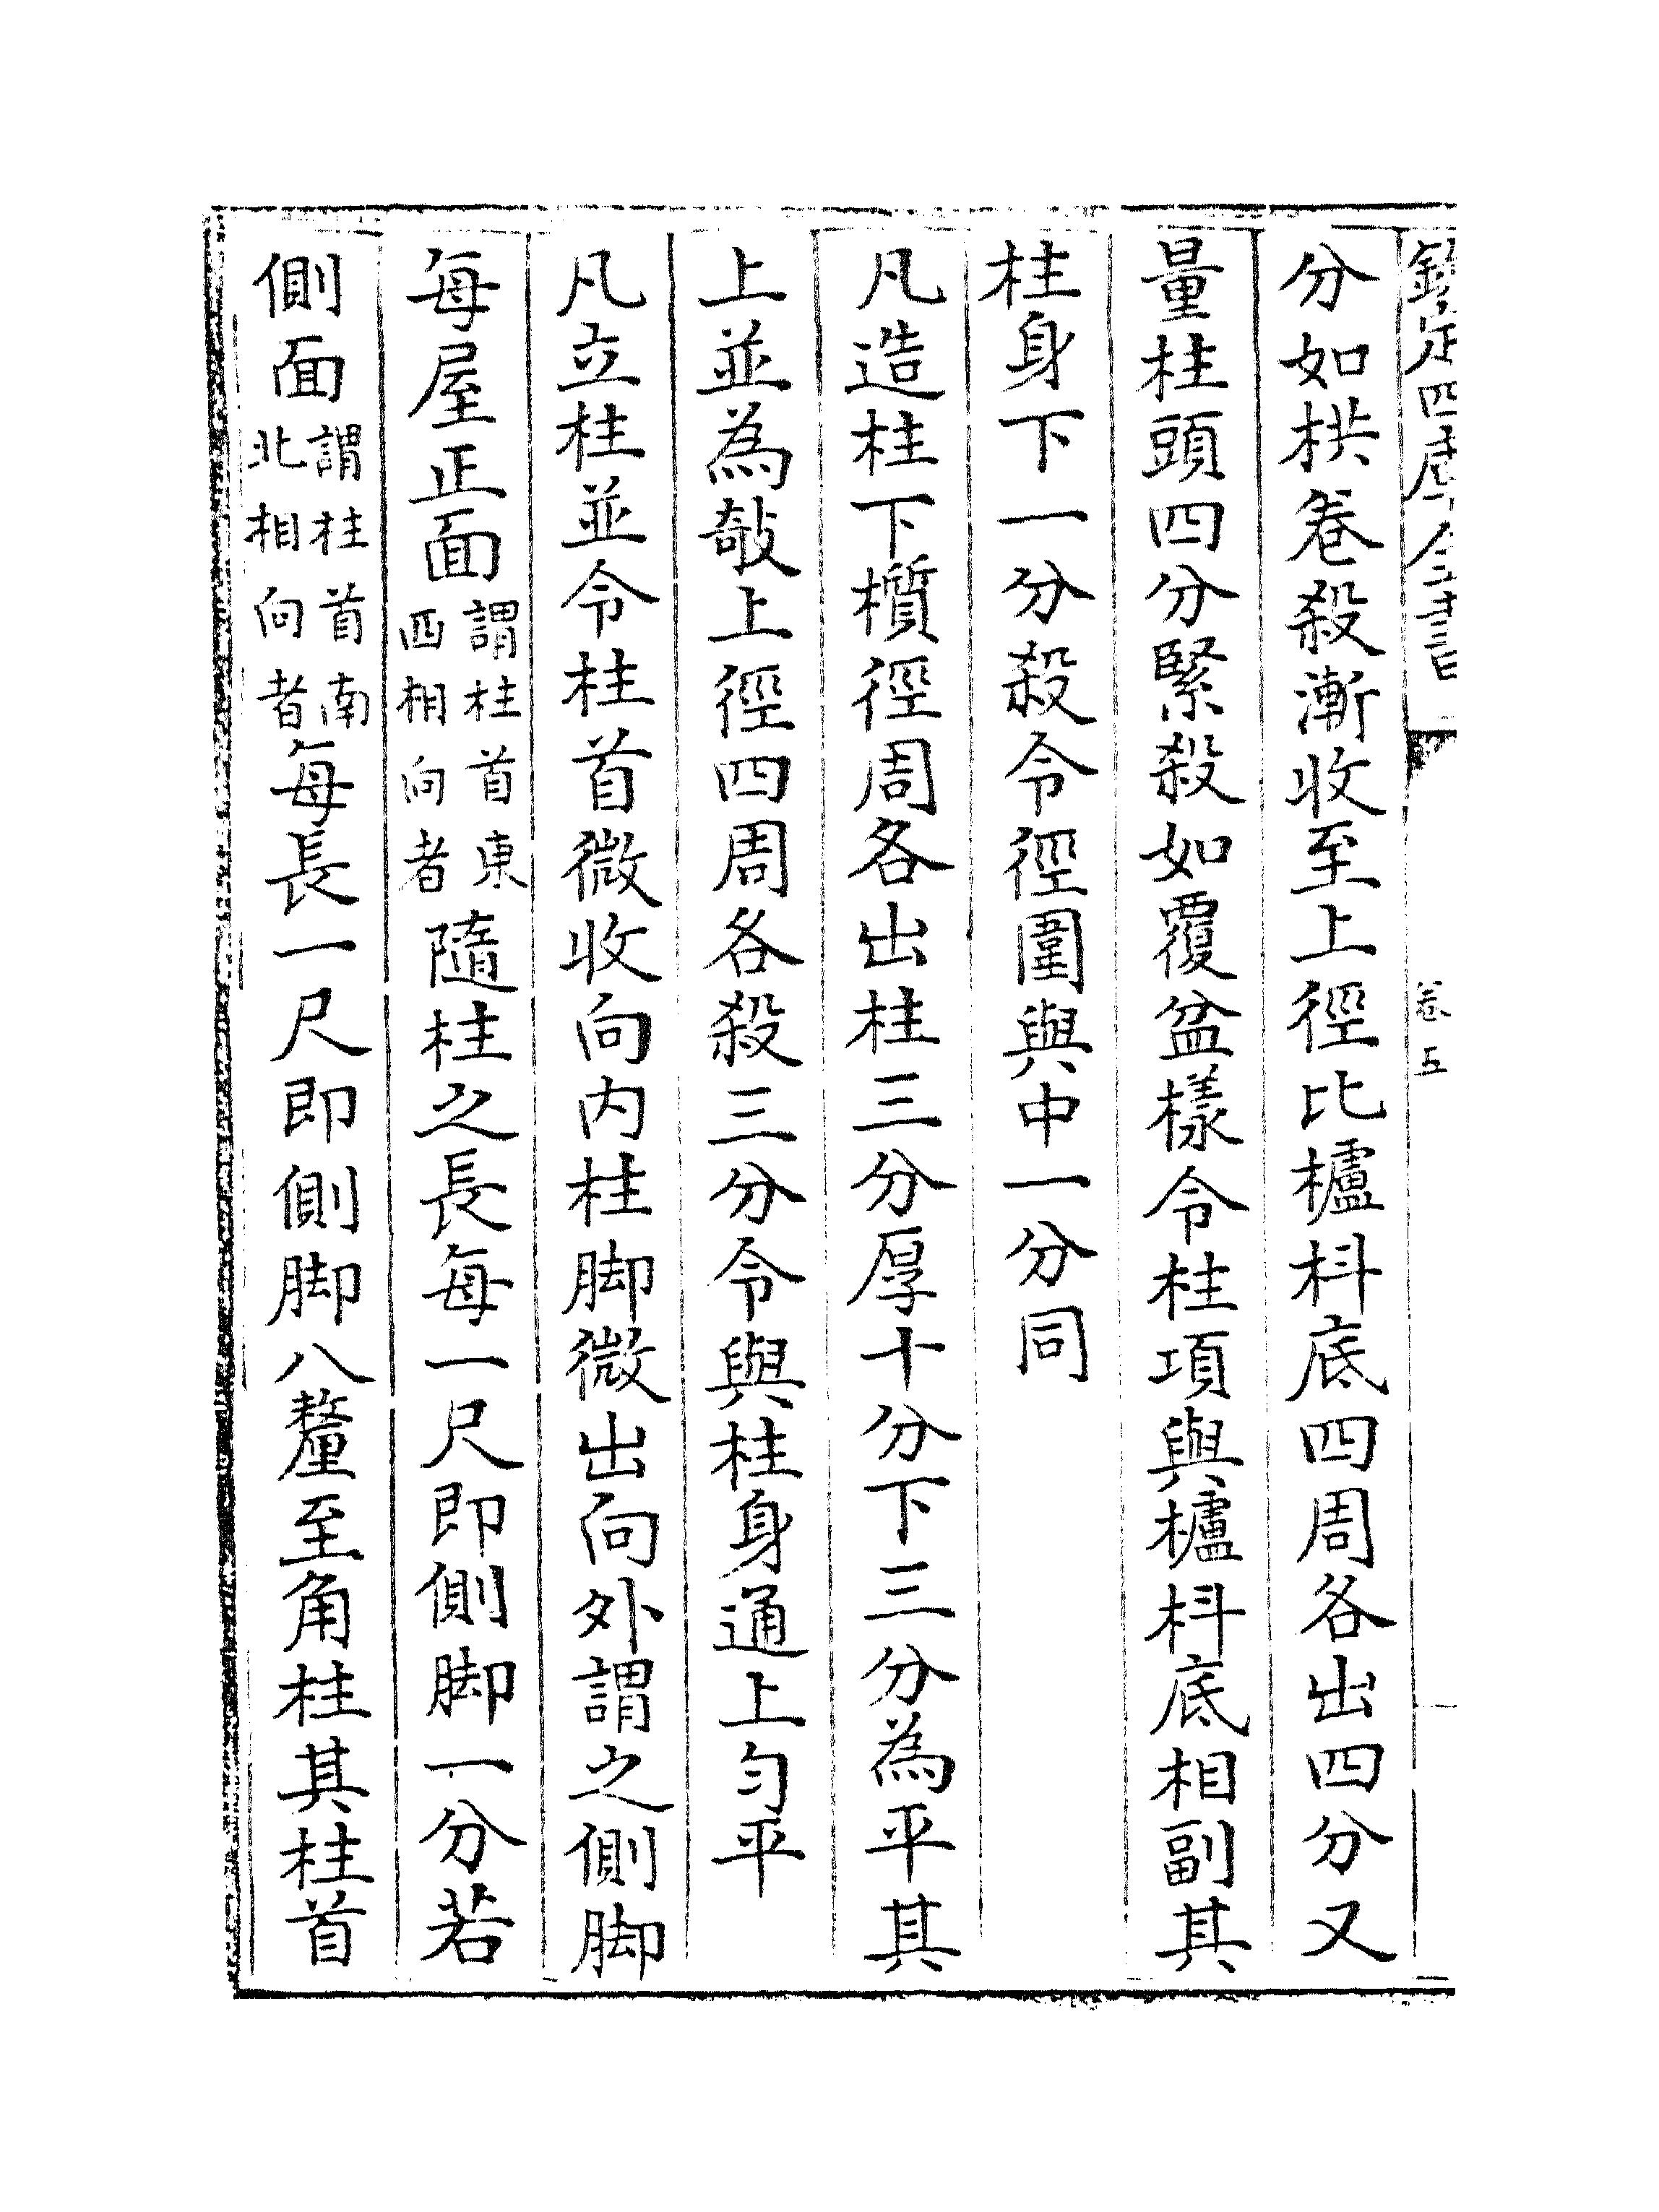 欽定四庫全書
卷五
分如栱卷殺漸收至上徑比櫨枓底四周各出四分又
量柱頭四分緊殺如覆盆樣令柱項與櫨枓底相副其
柱身下一分殺令徑圍與中一分同
凡造柱下櫍徑周各出柱三分厚十分下三分為平其
上並為欹上徑四周各殺三分令與柱身通上勻平
凡立柱並令柱首微收向内柱脚微出向外謂之側脚
每屋正面謂柱首東西相向者隨柱之長每一尺即側脚一分若
側面謂柱首南北相向者每長一尺即側脚八釐至角柱其柱首